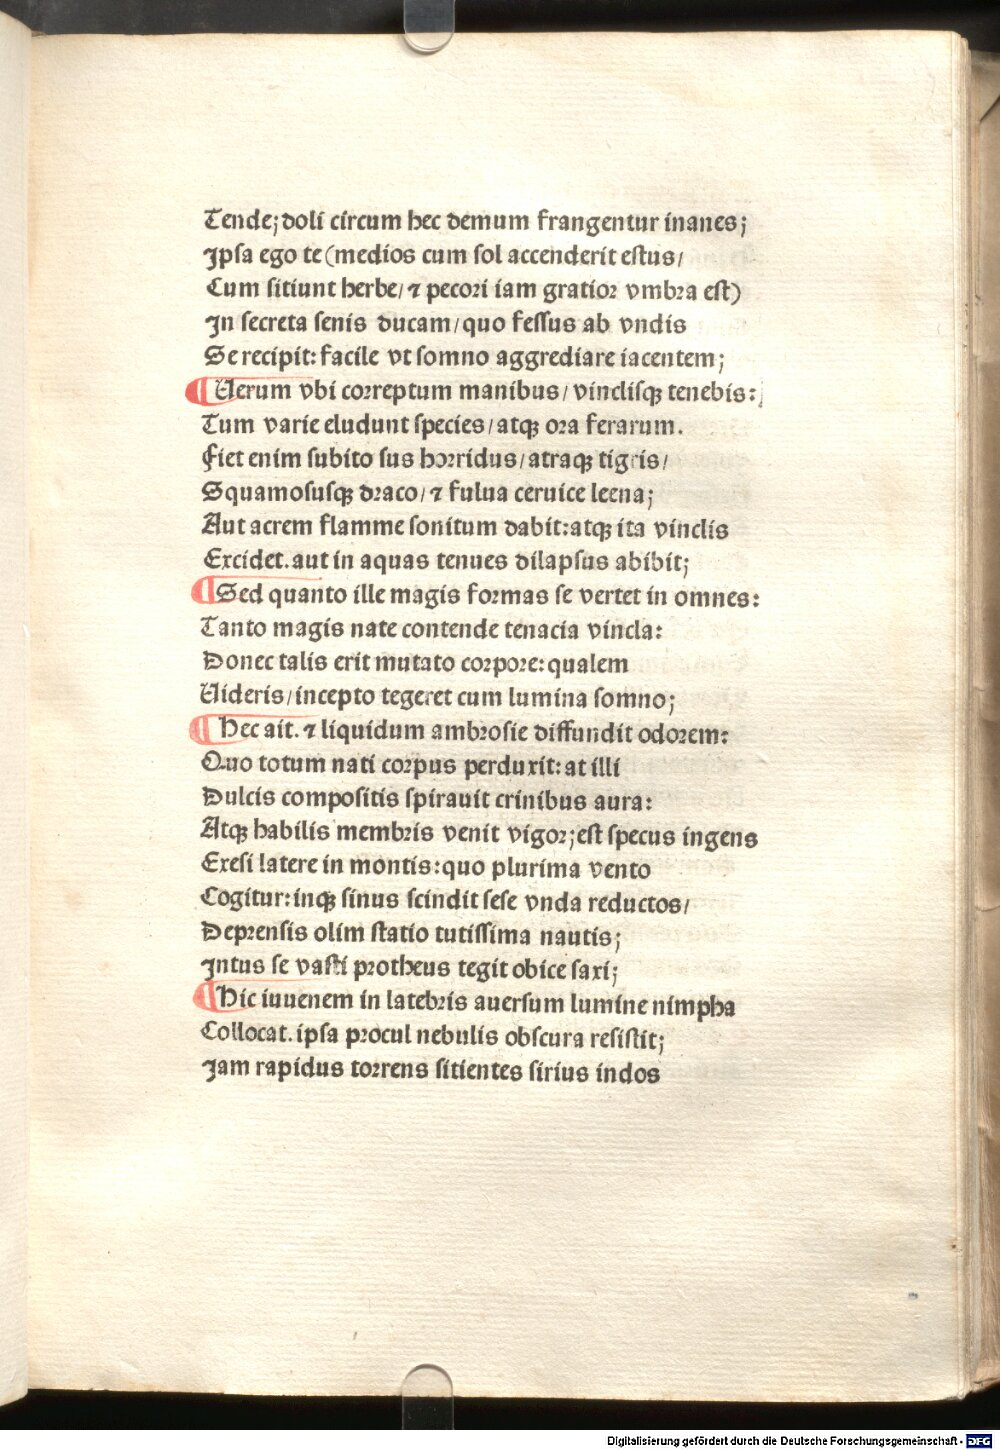 Tende; doli circum hec demum frangentur inanes;
Ipsa ego te (medios cum sol accenderit estus/
Cum sitiunt herbe/ ⁊ pecori iam gratior vmbra est)
In secreta senis ducam/ quo fessus ab vndis
Se recipit: facile vt somno aggrediare iacentem;
¶ Uerum vbi correptum manibus/ vinclisqꝫ tenebis:
Tum varie eludunt species/ atqꝫ ora ferarum.
Fiet enim subito sus horridus/ atraqꝫ tigris/
Squamosusqꝫ draco/ ⁊ fulua ceruice leena;
Aut acrem flamme sonitum dabit: atqꝫ ita vinclis
Excidet. aut in aquas tenues dilapsus abibit;
¶ Sed quanto ille magis formas se vertet in omnes:
Tanto magis nate contende tenacia vincla:
Donec talis erit mutato corpore: qualem
Uideris/ incepto tegeret cum lumina somno;
¶ Hec ait. ⁊ liquidum ambrosie diffundit odorem:
Quo totum nati corpus perduxit: at illi
Dulcis compositis spirauit crinibus aura:
Atqꝫ habilis membris venit vigor; est specus ingens
Exesi latere in montis: quo plurima vento
Cogitur: inqꝫ sinus scindit sese vnda reductos/
Deprensis olim statio tutissima nautis;
Intus se vasti protheus tegit obice saxi;
¶ Hic iuuenem in latebris auersum lumine nimpha
Collocat. ipsa procul nebulis obscura resistit;
Iam rapidus torrens sitientes sirius indos
Digitalisierung gefördert durch die Deutsche Forschungsgemeinschaft - DFG